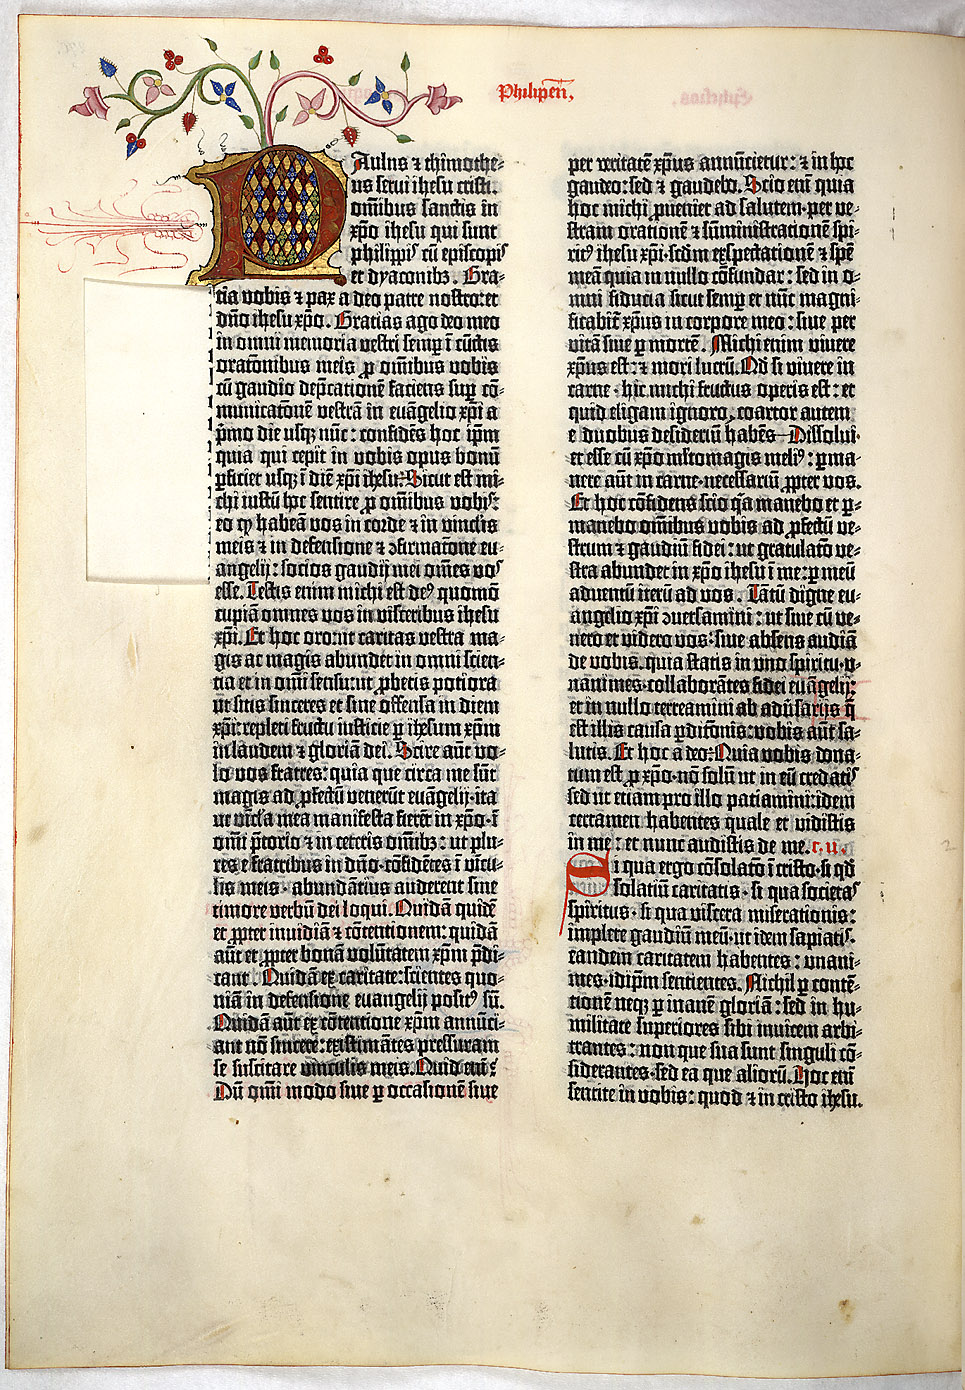 Philipeñ,
Paulus ⁊ thimothe-
us serui ihesu cristi:
om̃ibus sanctis in
xp̃o ihesu qui sunt
philippis cũ episcopis
et dyaconibꝫ. Gra-
tia vobis ⁊ pax a deo patre nostro: et
dñο ihesu xp̃o. Gratias ago deo meo
in omni memoria vestri semꝑ ĩ cũctis
oratõnibus meis ꝓ om̃ibus vobis
cũ gaudio dep̃cationē faciens suꝑ cõ-
municatõne vestrā in euāgelio xp̃i a
p̃mo die usqꝫ nũc: confidēs hoc ip̃m
quia qui cepit in vobis opus bonũ
ꝑficiet usqꝫ ĩ diē xp̃i ihesu: Sicut est mi-
chi iustũ hoc sentire ꝓ om̃ibus vobis:
eo ꝙ habeā vos in corde ⁊ in vinclis
meis ⁊ in defensione ⁊ ꝯfirmatõne eu-
angelij: socios gaudij mei om̃es vos
esse. Testis enim michi est deꝰ quomõ
cupiā omnes vos in visceribus ihesu
xp̃i. Et hoc oro: ut caritas vestra ma-
gis ac magis abundet in omni scien-
tia et in om̃i sensu: ut ꝓbetis potiora
ut sitis sinceres et sine offensa in diem
xp̃i: repleti fructu iusticie ꝑ ihesum xp̃m
in laudem ⁊ gloriā dei. Scire aũt vo-
lo vos fratres: quia que circa me sũt
magis ad ꝓfectũ venerũt euāgelij: ita
ut vĩcla mea manifesta fierēt in xp̃o ĩ
om̃i p̃torio ⁊ in ceteris om̃ibꝫ: ut plu-
res e fratribus in dñο cõfidētes ĩ vĩcu-
lis meis abundātius auderent sine
timore verbũ dei loqui. Quidā quidē
et ꝓpter inuidiā ⁊ cõtentionem: quidā
aũt et ꝓpter bonā volũtatem xp̃m p̃di-
cant. Quidā ex caritate: scientes quo-
niā in defensione euangelij positꝰ sũ.
Quidā aũt ex cõtentione xp̃m annũci-
ant nõ sincere: existimātes pressuram
se suscitare vinculis meis. Quid enĩ?
Dũ om̃i modo siue ꝑ occasionē siue
per veritatē xp̃us annũcietur: ⁊ in hoc
gaudeo: sed ⁊ gaudebo. Scio enĩ quia
hoc michi ꝓueniet ad salutem per ve-
stram orationē ⁊ sũministrationē spi-
ritꝰ ihesu xp̃i scdm expectationē ⁊ spē
meā quia in nullo cõfundar: sed in o-
mni fiducia sicut semꝑ et nũc magni-
ficabit̃ xp̃us in corpore meo: siue per
vitā siue ꝑ mortē. Michi enim viuere
xp̃us est: ⁊ mori lucrũ. Qd̃ si viuere in
carne hic michi fructus operis est: et
quid eligam ignoro, coartor autem
e duobus desideriũ habēs Dissolui
et esse cũ xp̃o mltomagis meliꝰ: ꝑma-
nere aũt in carne necessariũ ꝓpter vos.
Et hoc cõfidens scio q̃a manebo et ꝑ-
manebo om̃ibus vobis ad ꝓfectũ ve-
strum ⁊ gaudiũ fidei: ut gratulatõ ve-
stra abundet in xp̃o ihesu ĩ me: ꝑ meũ
aduentũ iterũ ad vos. Tātũ digne eu-
angelio xp̃i ꝯuersamini: ut siue cũ ve-
nero et videro vos: siue absens audiā
de vobis. quia statis in vno spiritu v-
nānimes collaborātes fidei euāgelij:
et in nullo terreamini ab aduĩsarijs q̃
est illis causa ꝑdic̃õnis: vobis aũt sa-
lutis. Et hoc a deo: Quia vobis dona-
tum est ꝓ xp̃o nõ solũ ut in eũ credatis
sed ut etiam pro illo patiamini: idem
certamen habentes quale et vidistis
in me: et nunc audistis de me. c. ii.
Si qua ergo cõsolatõ ĩ cristo si qd̃
solatiũ caritatis si qua societas
spiritus si qua viscera miserationis:
implete gaudiũ meũ ut idem sapiatis.
eandem caritatem habentes: vnani-
mes idip̃m sentientes. Nichil ꝑ contē-
tionē neqꝫ ꝑ inanē gloriā: sed in hu-
militate superiores sibi inuicem arbi-
trantes: non que sua sunt singuli cõ-
siderantes sed ea que aliorũ. Hoc enĩ
sentite in vobis: quod ⁊ in cristo ihesu.